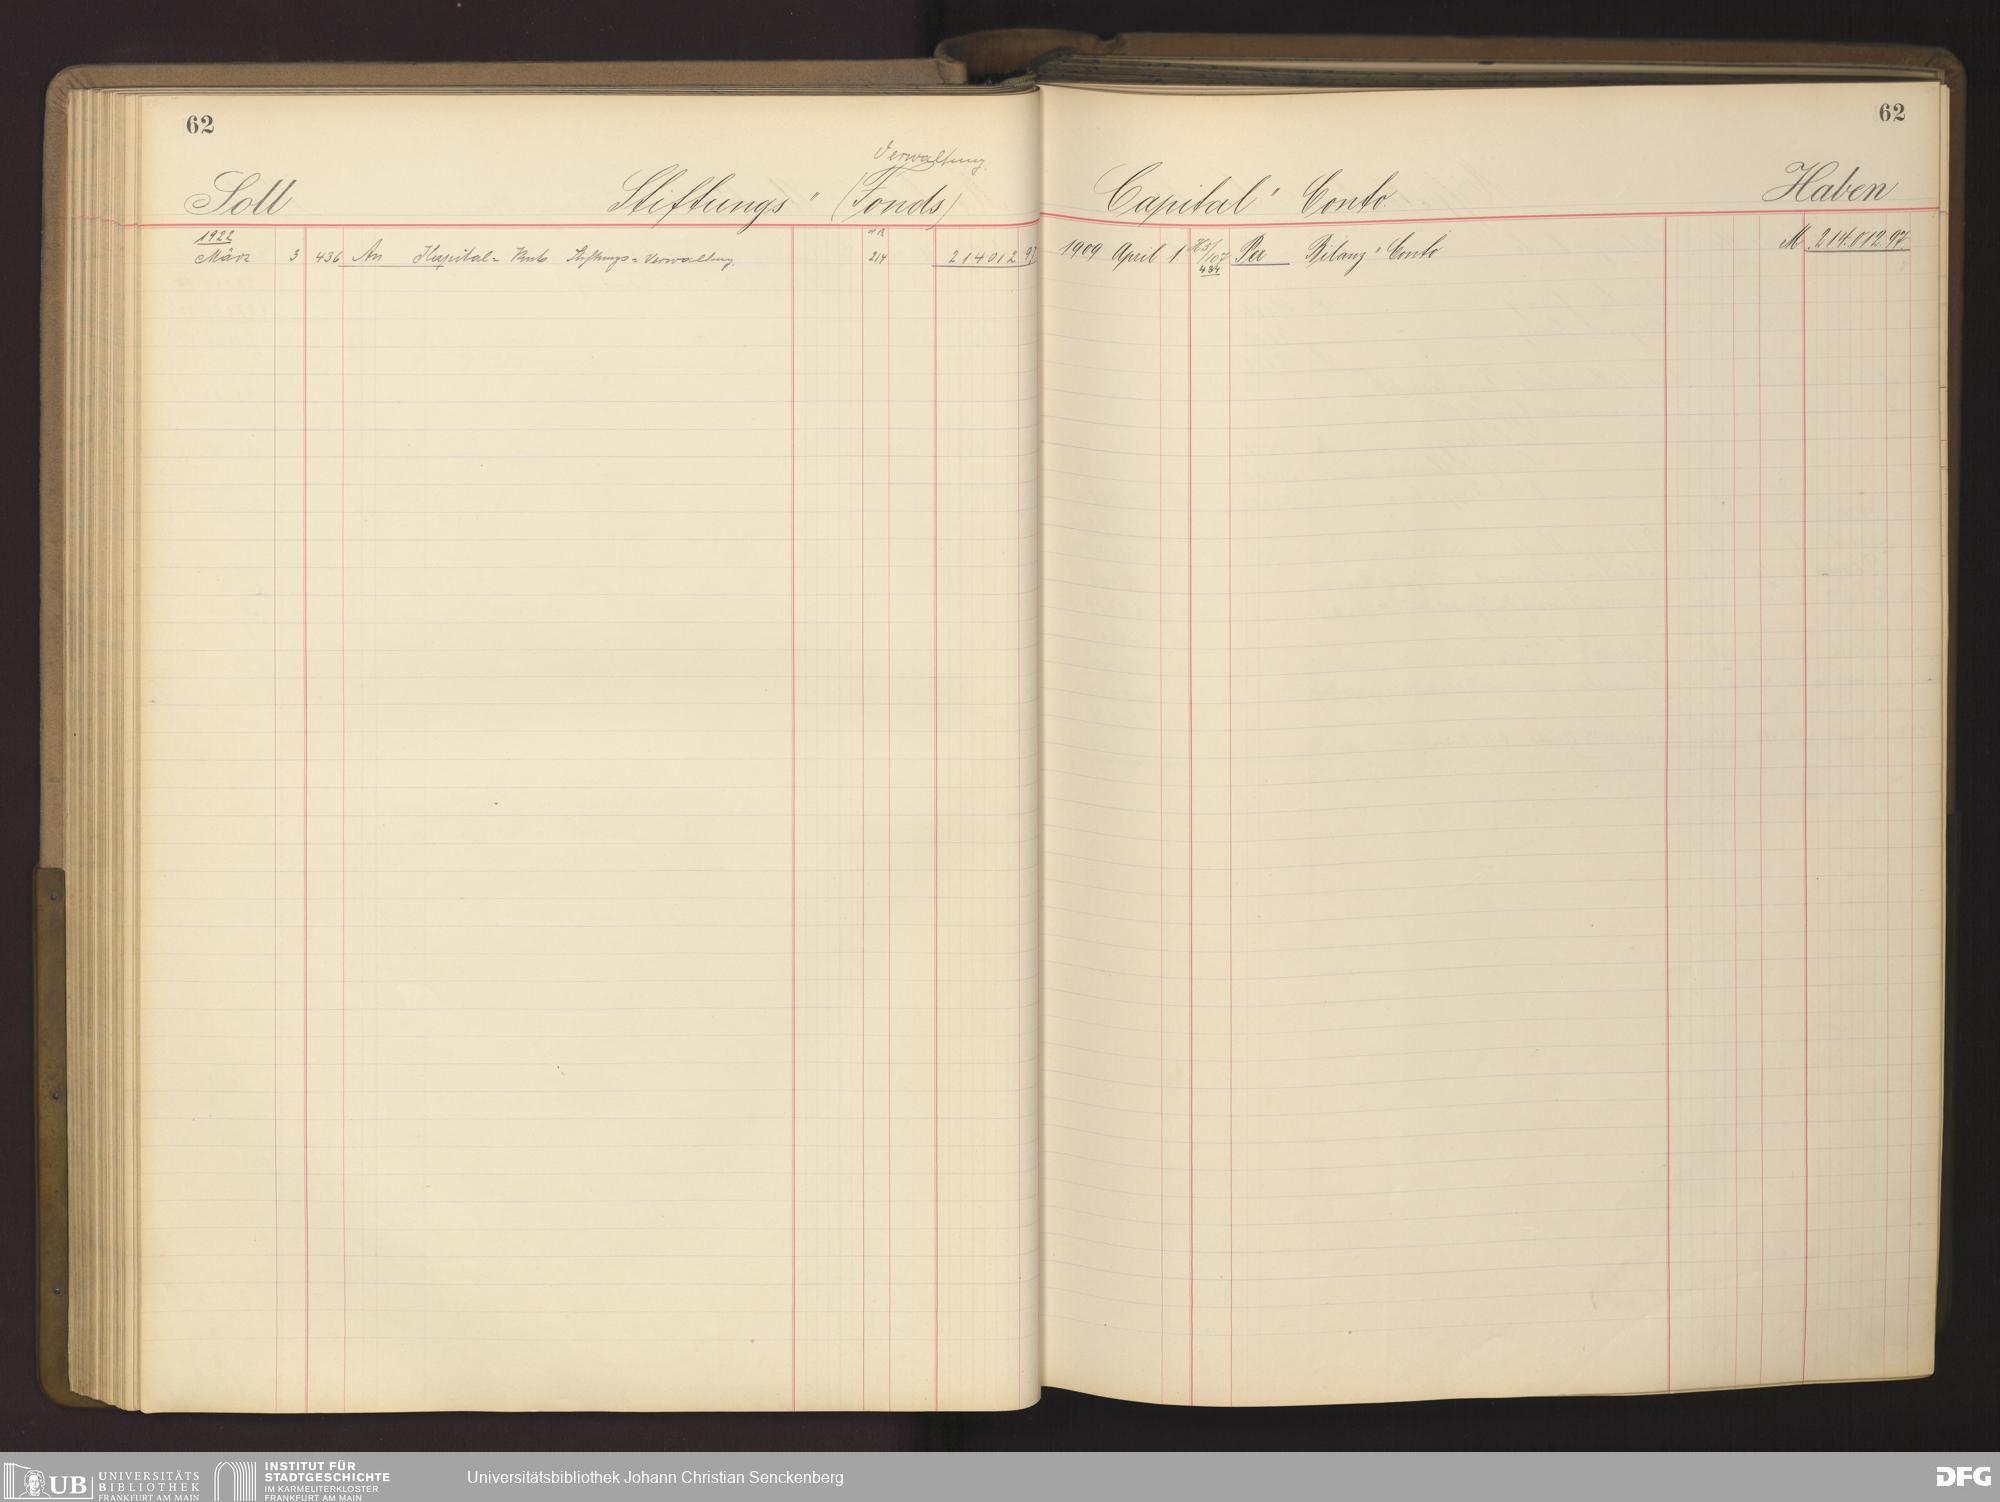 62
Verwaltung.
Soll Stiftungs" (Fonds)
1922
März 3 436 An Kapital= Konto Stiftungs=Verwaltung. 214 214012 97
62
Capital" Conto. Haben
1909 April 1 H3/107 Per Bilanz" Conto M 214.012.97
434
UB UNIVERSITÄTS
BIBLIOTHEK
FRANKFURT AM MAIN
INSTITUT FÜR
STADTGESCHICHTE
IM KARMELITERKLOSTER
FRANKFURT AM MAIN
Universitätsbibliothek Johann Christian Senckenberg
DFG